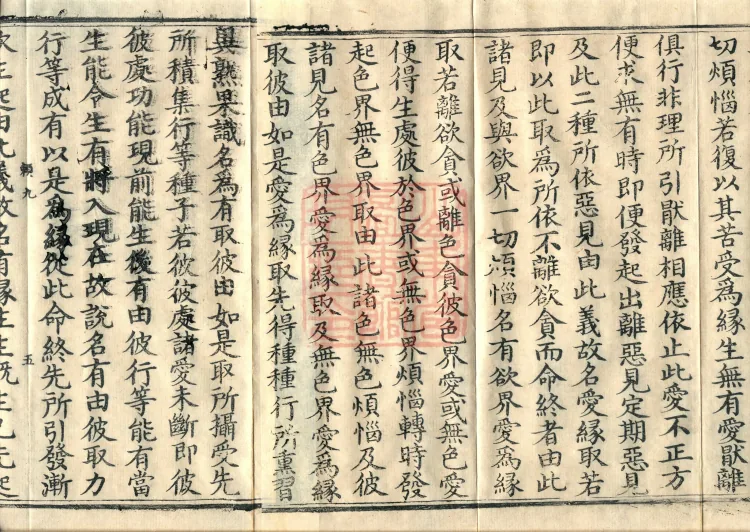 切煩惱若復以其苦受爲緣生無有愛猒離
俱行非理所引猒離相應依止此愛不正方
便求無有時即便發起出離惡見定期惡見
及此二種所依惡見由此義故名愛緣取若
即以此取爲所依不離欲貪而命終者由此
諸見及與欲界一切煩惱名有欲界愛爲緣
取若離欲貪或離色貪彼色界愛或無色愛
便得生處彼於色界或無色界煩惱轉時發
起色界無色界取由此諸色無色煩惱及彼
諸見名有色界愛爲緣取及無色界愛爲緣
取彼由如是愛爲緣取先得種種行所熏習
異熟果識名爲有取彼由如是取所攝受先
所積集行等種子若彼彼處諸愛未斷即彼
彼處功能現前能生後有由彼行等能有當
生能令生有將入現在故說名有由彼取力
行等成有以是爲緣從此命終先所引發漸
賴九
五
次生起由此義故名有緣生生既生已无